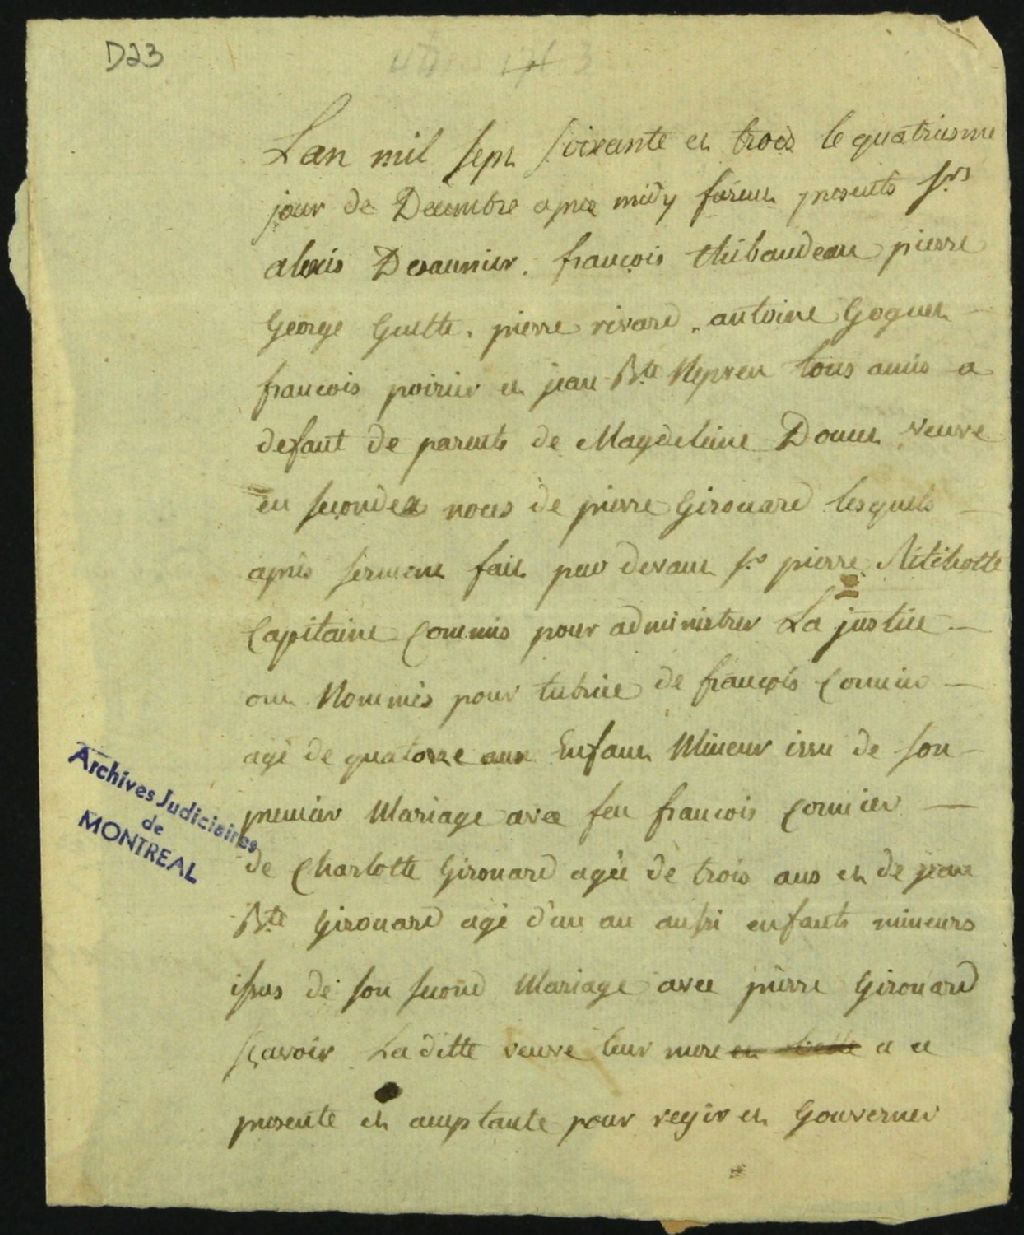 D23
Lan mil sept soixante et trois le quatriesme
jour de Decembre apres midy furent presents Srs
alexis Desaunier. françois thibaudeau pierre
George Guelte. pierre rivard. antoine Goguet
françois poirier et jean Bte Nepveu tous amis a
defaut de parents de Magdeleine Doucet veuve
en secondes noces de pierre Girouard lesquels
après serment fait par devant sr pierre Ritchotte
Capitaine Commis pour administrer La justice
ont Nommés pour tutrice de françois Cormier
agé de quatorze ans Enfant Mineur issu de son
premier Mariage avec feu françois Cormier
de Charlotte Girouard agée de trois ans et de jean
Bte Girouard agé d'un an aussi enfants mineurs
issus de son second Mariage avec pierre Girouard
sçavoir La ditte veuve leur mere a ce
presente et acceptante pour regir et Gouverner
Archives Judiciaires
de
MONTREAL